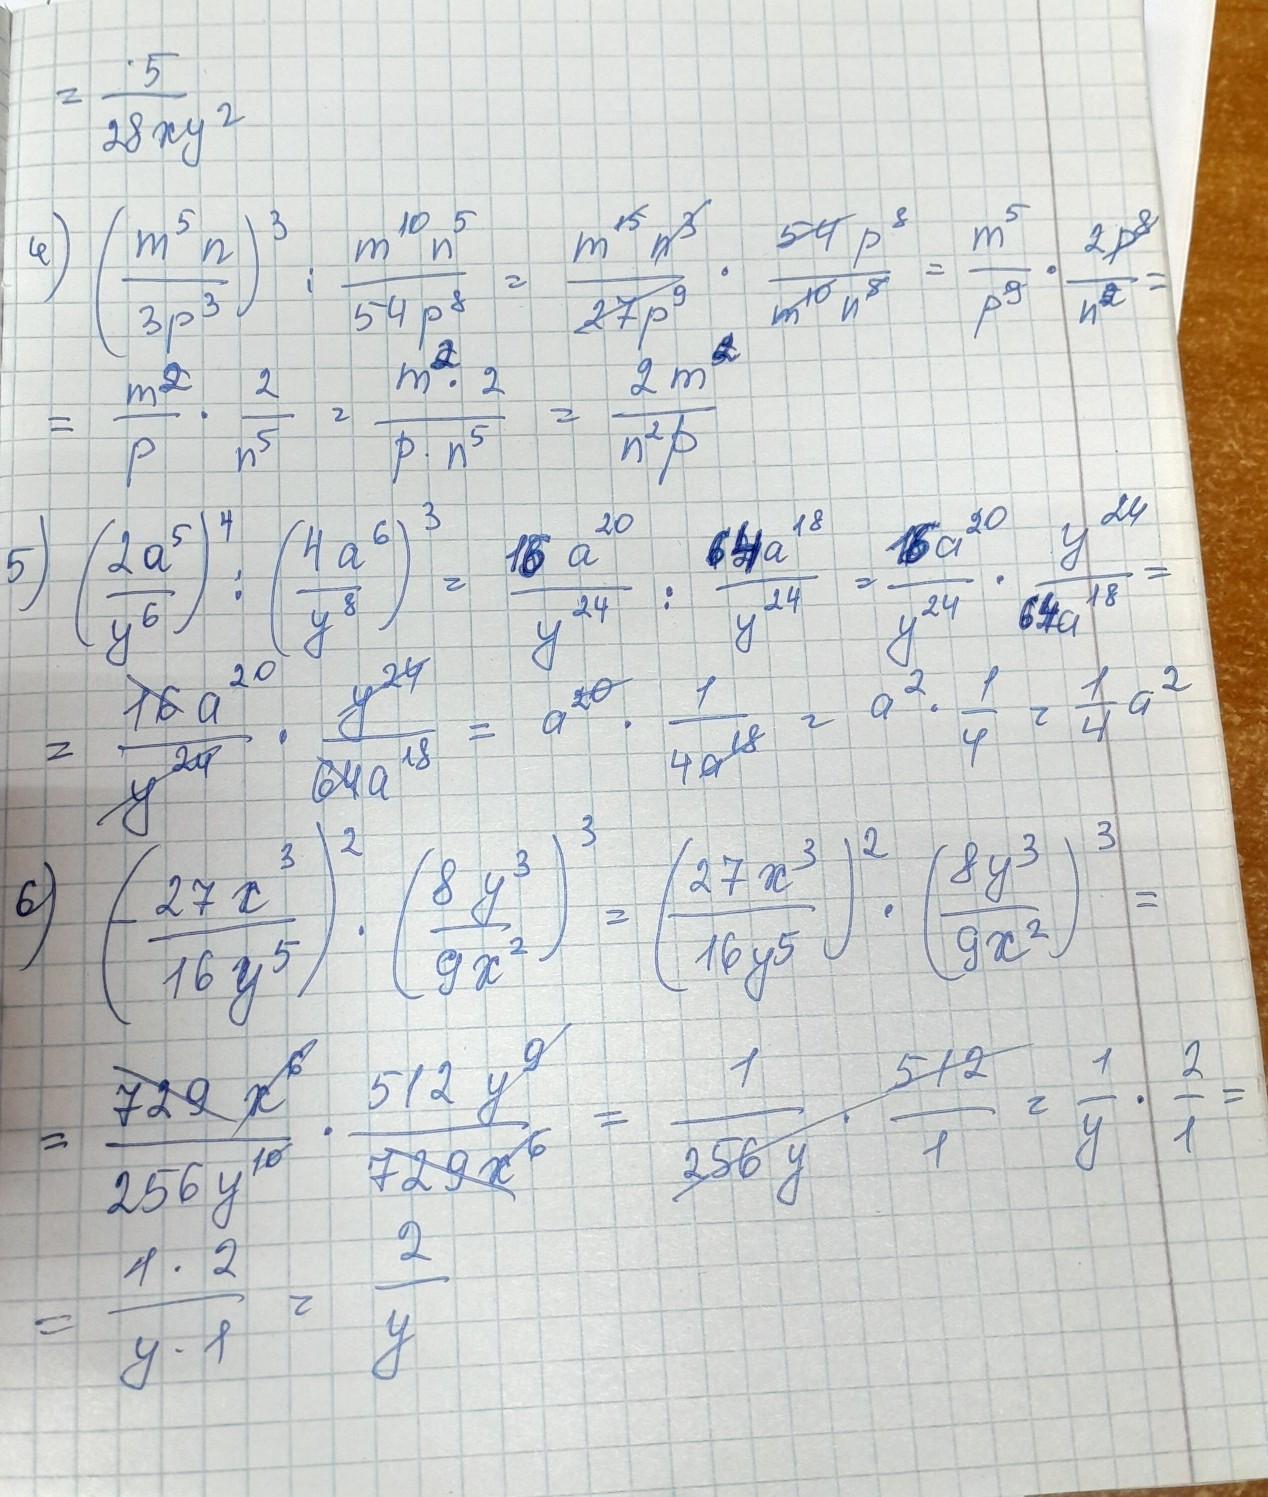 = 5/(28xy²)
4) (m⁵n/3p³)³ : m¹⁰n⁵/54p⁸ = m¹⁵n³/27p⁹ · 54p⁸/m¹⁰n⁸ = m⁵/p⁹ · 2p⁸/n² =
= m²/p · 2/n⁵ = m²·2/p·n⁵ = 2m²/n²p
5) (2a⁵/y⁶)⁴ : (4a⁶/y⁸)³ = 16a²⁰/y²⁴ : 64a¹⁸/y²⁴ = 16a²⁰/y²⁴ · y²⁴/64a¹⁸ =
= 16a²⁰/y²⁴ · y²⁴/64a¹⁸ = a²⁰ · 1/4a¹⁸ = a² · 1/4 = 1/4 a²
6) (-27x³/16y⁵)² · (8y³/9x²)³ = (27x³/16y⁵)² · (8y³/9x²)³ =
= 729x⁶/256y¹⁰ · 512y⁹/729x⁶ = 1/256y · 512/1 = 1/y · 2/1 =
= 1·2/y·1 = 2/y